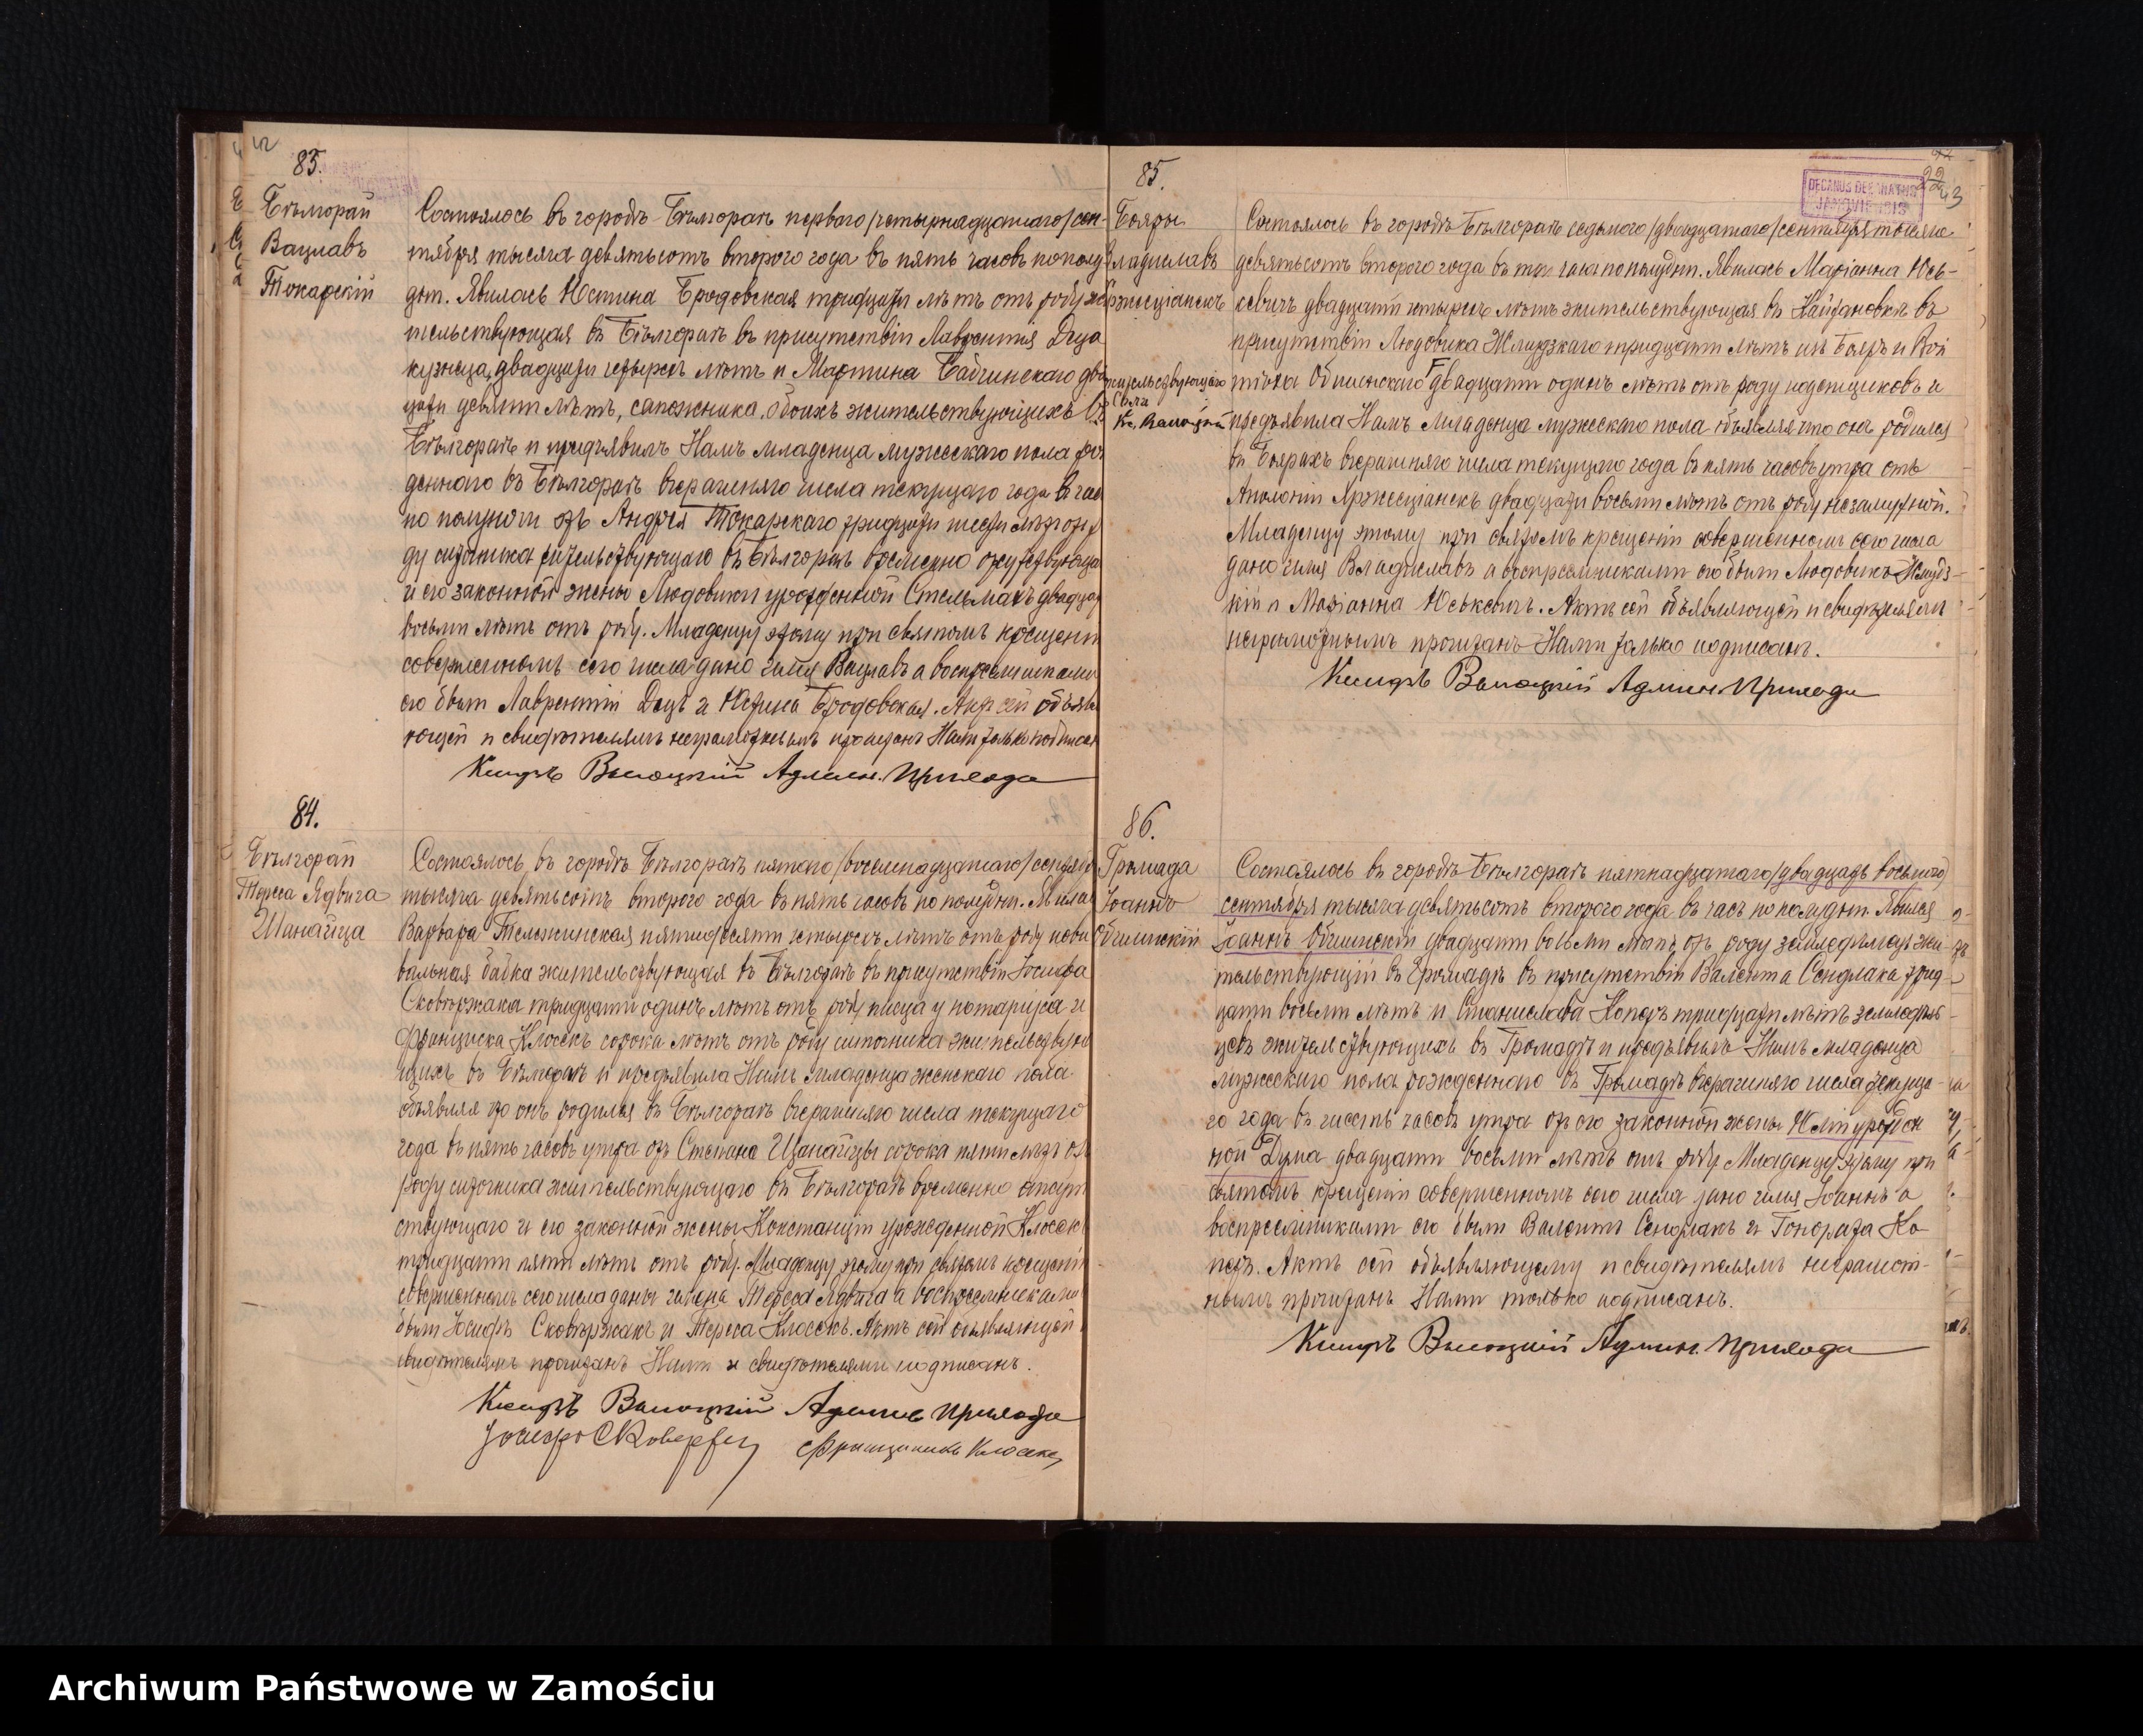 83.
Бѣлгорай
Вацлавъ
Токарскій
Состоялось въ городѣ Бѣлгораѣ перваго/четырнадцатаго/сен-
тября тысяча девятьсотъ второго года въ пять часовъ пополу
дни. Явилась Юстина Бродовская тридцати лѣтъ отъ роду жи
тельствующая въ Бѣлгораѣ въ присутствіи Лаврентія Деца
кузнеца, двадцати четырехъ лѣтъ и Мартина Бабчинскаго два
цати девяти лѣтъ, сапожника обоихъ жительствующихъ въ
Бѣлгораѣ и предъявилъ Намъ младенца мужескаго пола ро
деннаго въ Бѣлгораѣ вчерашняго числа текущаго года въ час
по полуночи отъ Андрея Токарскаго тридцати шести лѣтъ отъ р
ду ситника жительствующаго въ Бѣлгораѣ временно отсутствующа
и его законной жены Людовики урожденной Стельмахъ двадца
восьми лѣтъ отъ роду. Младенцу этому при святомъ крещеніи
совершенномъ сего числа дано имя Вацлавъ а воспреемниками
его были Лаврентій Децъ и Юстина Бродовская. Актъ сей объявл
ющей и свидѣтелямъ неграмотнымъ прочитанъ Нами только подписан
Ксендзъ Высоцкій Админ. Прихода
84.
Бѣлгорай
Тереса Ядвига
Шанайца
Состоялось въ городѣ Бѣлгораѣ пятаго/восемнадцатаго/сентяб
тысяча девятьсотъ второго года въ пять часовъ по полудни. Явилас
Варвара Тележинская пятидесяти четырехъ лѣтъ отъ роду пови
вальная бабка жительствующая въ Бѣлгораѣ въ присутствіи Іосифа
Сковѣржака тридцати одинъ лѣтъ отъ роду писца у нотаріуса и
Франциска Клосекъ сорока лѣтъ отъ роду ситочника жительствую
щихъ въ Бѣлгораѣ и предъявила Намъ младенца женскаго пола
объявляя что онъ родился въ Бѣлгораѣ вчерашняго числа текущаго
года въ пять часовъ утра отъ Степана Шанайцы сорока пяти лѣтъ от
роду ситочника жительствующаго въ Бѣлгораѣ временно отсут
ствующаго и его законной жены Констанціи урожденной Клосек
тридцати пяти лѣтъ отъ роду. Младенцу этому при святомъ крещеніи
совершенномъ сего числа даны имена Тереса Ядвига а воспреемниками
были Іосифъ Сковѣржакъ и Тереса Клосекъ. Актъ сей объявляющей
свидѣтелямъ прочитанъ Нами и свидѣтелями подписанъ.
Ксендзъ Высоцкій Админ Прихода
Францишекъ Клосекъ
85.
Бояры
Владиславъ
Кржесціанекъ
жительствующаго
Кс. Высоцкій
Состоялось въ городѣ Бѣлгораѣ седьмого/двадцатаго/сентября тысяча
девятьсотъ второго года въ три часа по полудни. Явилась Маріанна Юсь-
кевичъ двадцати четырехъ лѣтъ жительствующая въ Кайтановкѣ въ
присутствіи Людовика Жмудзкаго тридцати лѣтъ изъ Бояръ и Вой
тѣха Обшинскаго двадцати одинъ лѣтъ отъ роду поденщиковъ и
предъявила Намъ младенца мужескаго пола объявляя что онъ родился
въ Боярахъ вчерашняго числа текущаго года въ пять часовъ утра отъ
Аполоніи Кржесціанекъ двадцати восьми лѣтъ отъ роду незамужной.
Младенцу этому при святомъ крещеніи совершенномъ сего числа
дано имя Владиславъ а воспреемниками его были Людовикъ Жмудз-
кій и Маріанна Юськевичъ. Актъ сей объявляющей и свидѣтелямъ
неграмотнымъ прочитанъ Нами только подписанъ.
Ксендзъ Высоцкій Админ. Прихода
DECANUS DECANATUS
JANOVIENSIS
86.
Громада
Іоаннъ
Обшинскій
Состоялось въ городѣ Бѣлгораѣ пятнадцатаго/двадцать восьмого/
сентября тысяча девятьсотъ второго года въ часъ по полудни. Явился
Іоаннъ Обшинскій двадцати восьми лѣтъ отъ роду земледѣлецъ жи-
тельствующій въ Громадѣ въ присутствіи Валента Сендлака трид-
цати восьми лѣтъ и Станислава Коперъ тридцати лѣтъ земледѣль-
цевъ жительствующихъ въ Громадѣ и предъявилъ Намъ младенца
мужескаго пола рожденнаго въ Громадѣ вчерашняго числа текуща-
го года въ шесть часовъ утра отъ его законной жены Юліи урожден
ной Дума двадцати восьми лѣтъ отъ роду Младенцу этому при
святомъ крещеніи совершенномъ сего числа дано имя Іоаннъ а
воспреемниками его были Валентъ Сендлакъ и Гонората Ко-
перъ. Актъ сей объявляющему и свидѣтелямъ неграмот-
нымъ прочитанъ Нами только подписанъ.
Ксендзъ Высоцкій Админ. Прихода
Archiwum Państwowe w Zamościu